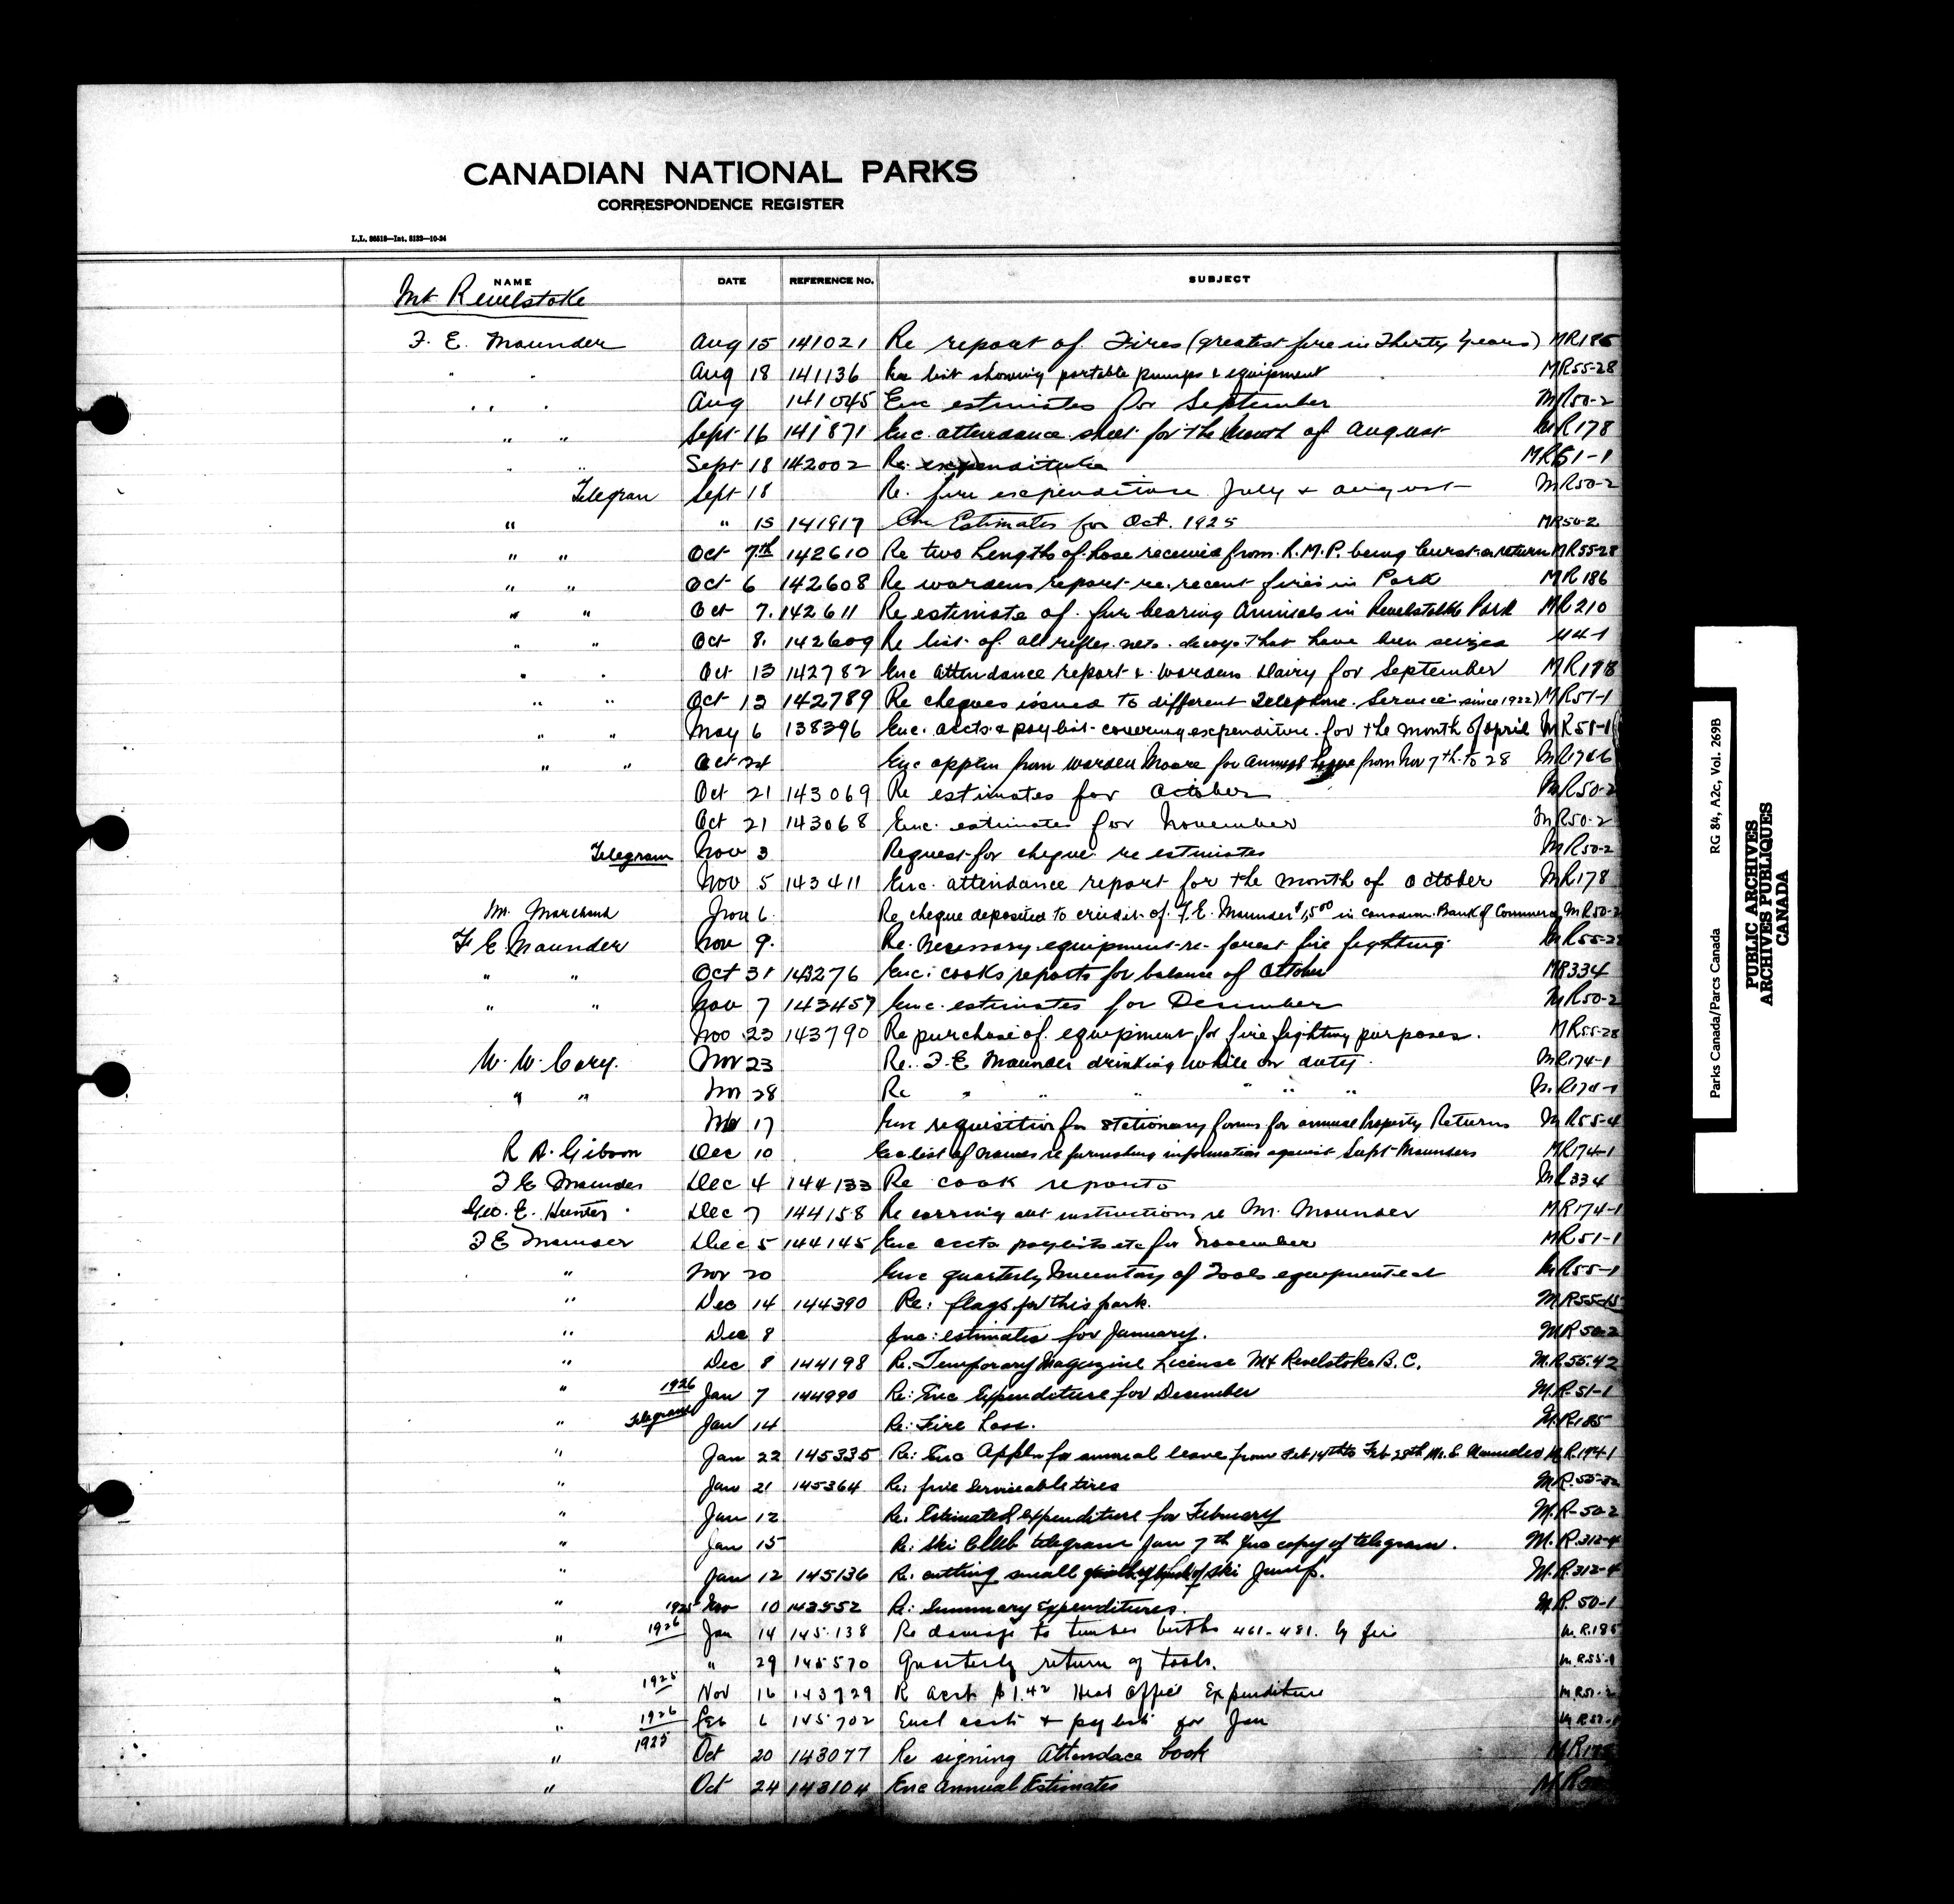 CANADIAN NATIONAL PARKS
CORRESPONDENCE REGISTER
L.L. 86518—Int. 8133—10-24
NAME DATE REFERENCE No. SUBJECT
Mt Revelstoke
F. E. Maunder Aug 15 141021 Re report of Fires (greatest fire in Thirty years) MR186
" " Aug 18 141136 Enc list showing portable pumps & equipment MR55-28
" " Aug 141045 Enc estimates for September MR50-2
" " Sept 16 141871 Enc. attendance sheet for the Month of August MR178
" " Sept 18 142002 Re: expenditure MR51-1
Telegram Sept 18 Re. fire expenditure July & august MR50-2
" " 15 141917 Estimates for Oct. 1925 MR50-2
" " Oct 7th 142610 Re two Lengths of hose received from R.M.P. being burst & return MR55-28
" " Oct 6 142608 Re wardens report re. recent fires in Park MR186
" " Oct 7. 142611 Re estimate of fur bearing Animals in Revelstoke Park MR210
" " Oct 8. 142609 Re list of all rifles nets. decoys that have been seized U4-1
" " Oct 13 142782 Enc attendance report & wardens Dairy for September MR178
" " Oct 13 142789 Re cheques issued to different Telephone Service since 1922) MR51-1
" " May 6 138396 Enc. accts & paylist covering expenditure for the month of april MR51-1
" " Oct 24 Enc applcn from warden Moore for annual leave from Nov 7th to 28
Oct 21 143069 Re estimates for October MR50-2
Oct 21 143068 Enc. estimates for November MR50-2
Telegram Nov 3 Request for cheque re estimates MR50-2
Nov 5 143411 Enc. attendance report for the month of October MR178
M. Marchand Nov 6. Re cheque deposited to credit of F.E. Maunder $1,500 in Canadian Bank of Commerce MR50-2
F E Maunder Nov 9. Re. necessary equipment re forest fire fighting. MR55-28
" " Oct 31 143276 Enc: cooks reports for balance of October MR334
" " Nov 7 143457 Enc. estimates for December MR50-2
Nov 23 143790 Re purchase of equipment for fire fighting purposes. MR55-28
W. W. Cory. Nov 23 Re. F. E Maunder drinking while on duty. MR174-1
" " Nov 28 Re " " " " " MR174-1
Nov 17 Enc requisition for stationary forms for annual Property Returns MR55-4
R A. Gibson Dec 10 Enc list of names re furnishing information against Supt Maunders MR174-1
F E Maunder Dec 4 144133 Re cook reports MR334
Geo. E. Hunter Dec 7 144158 Re carrying out instructions re M. Maunder MR174-1
F E Maunder Dec 5 144145 Enc accts paylists etc for November MR51-1
" Nov 20 Enc quarterly Inventory of Tools equipment ect MR55-1
" Dec 14 144390 Re: flags for this park. MR55-15
" Dec 8 Enc: estimates for January. MR50-2
" Dec 8 144198 Re. Temporary Magazine License Mt Revelstoke B.C. M.R.55.42
" 1926 Jan 7 144990 Re: Enc Expenditure for December M.R-51-1
" Telegram Jan 14 Re: Fire Loss. M.R.185
" Jan 22 145335 Re: Enc Applcn for annual leave from Feb 14th to Feb 28th M.R.174-1
" Jan 21 145364 Re: five serviceable tires
" Jan 12 Re. Estimated expenditure for February M.R-50-2
" Jan 15 Re: Ski Club telegram Jan 7th Enc copy of telegram. M.R.312-4
" Jan 12 145136 Re. cutting small of ski jump. M.R.312-4
" 1925 Nov 10 143552 Re: Summary Expenditures. M.R. 50-1
" 1926 Jan 14 145138 Re damage to timber berths 461-481. by fire M.R.185
" " 29 145570 Quarterly return of tools. M.R.55-1
" 1925 Nov 16 143729 R accts $1.42 Head Office Expenditure MR51-2
" 1926 Feb 6 145702 Encl accts & pay lists for Jan
" 1925 Oct 20 143077 Re signing Attendace book
" Oct 24 143104 Enc Annual Estimates
Parks Canada/Parcs Canada RG 84, A2c, Vol. 269B
PUBLIC ARCHIVES
ARCHIVES PUBLIQUES
CANADA